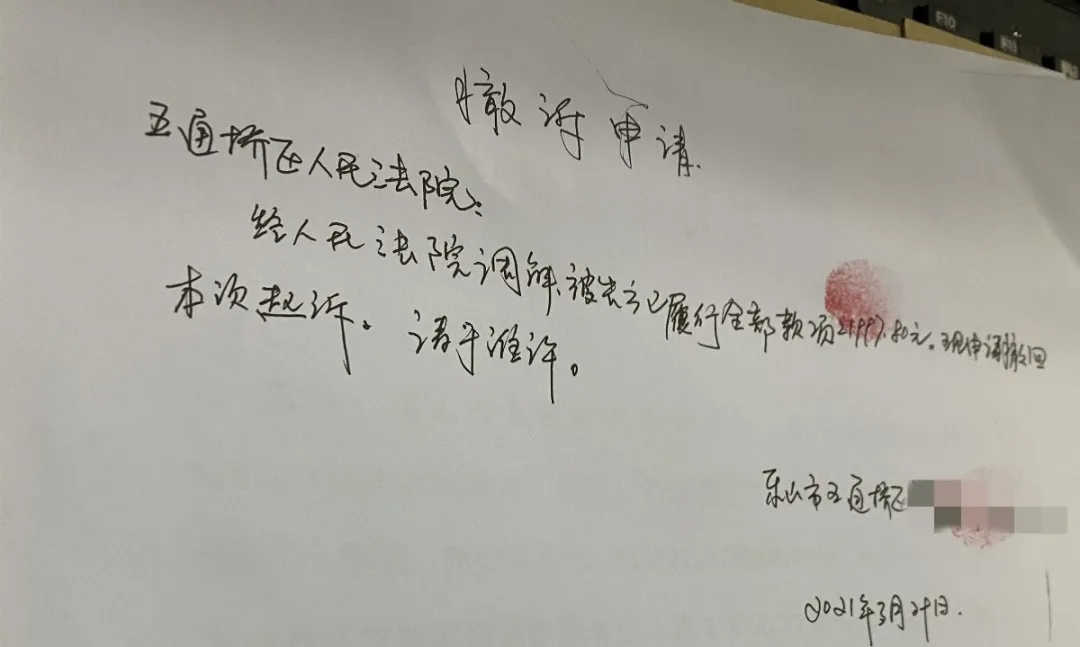 撤诉申请
五通桥区人民法院:
经人民法院调解,被告方已履行全部款项21997.80元。现申请撤回
本次起诉。请予准许。
乐山市五通桥区
2021年3月29日.
F10